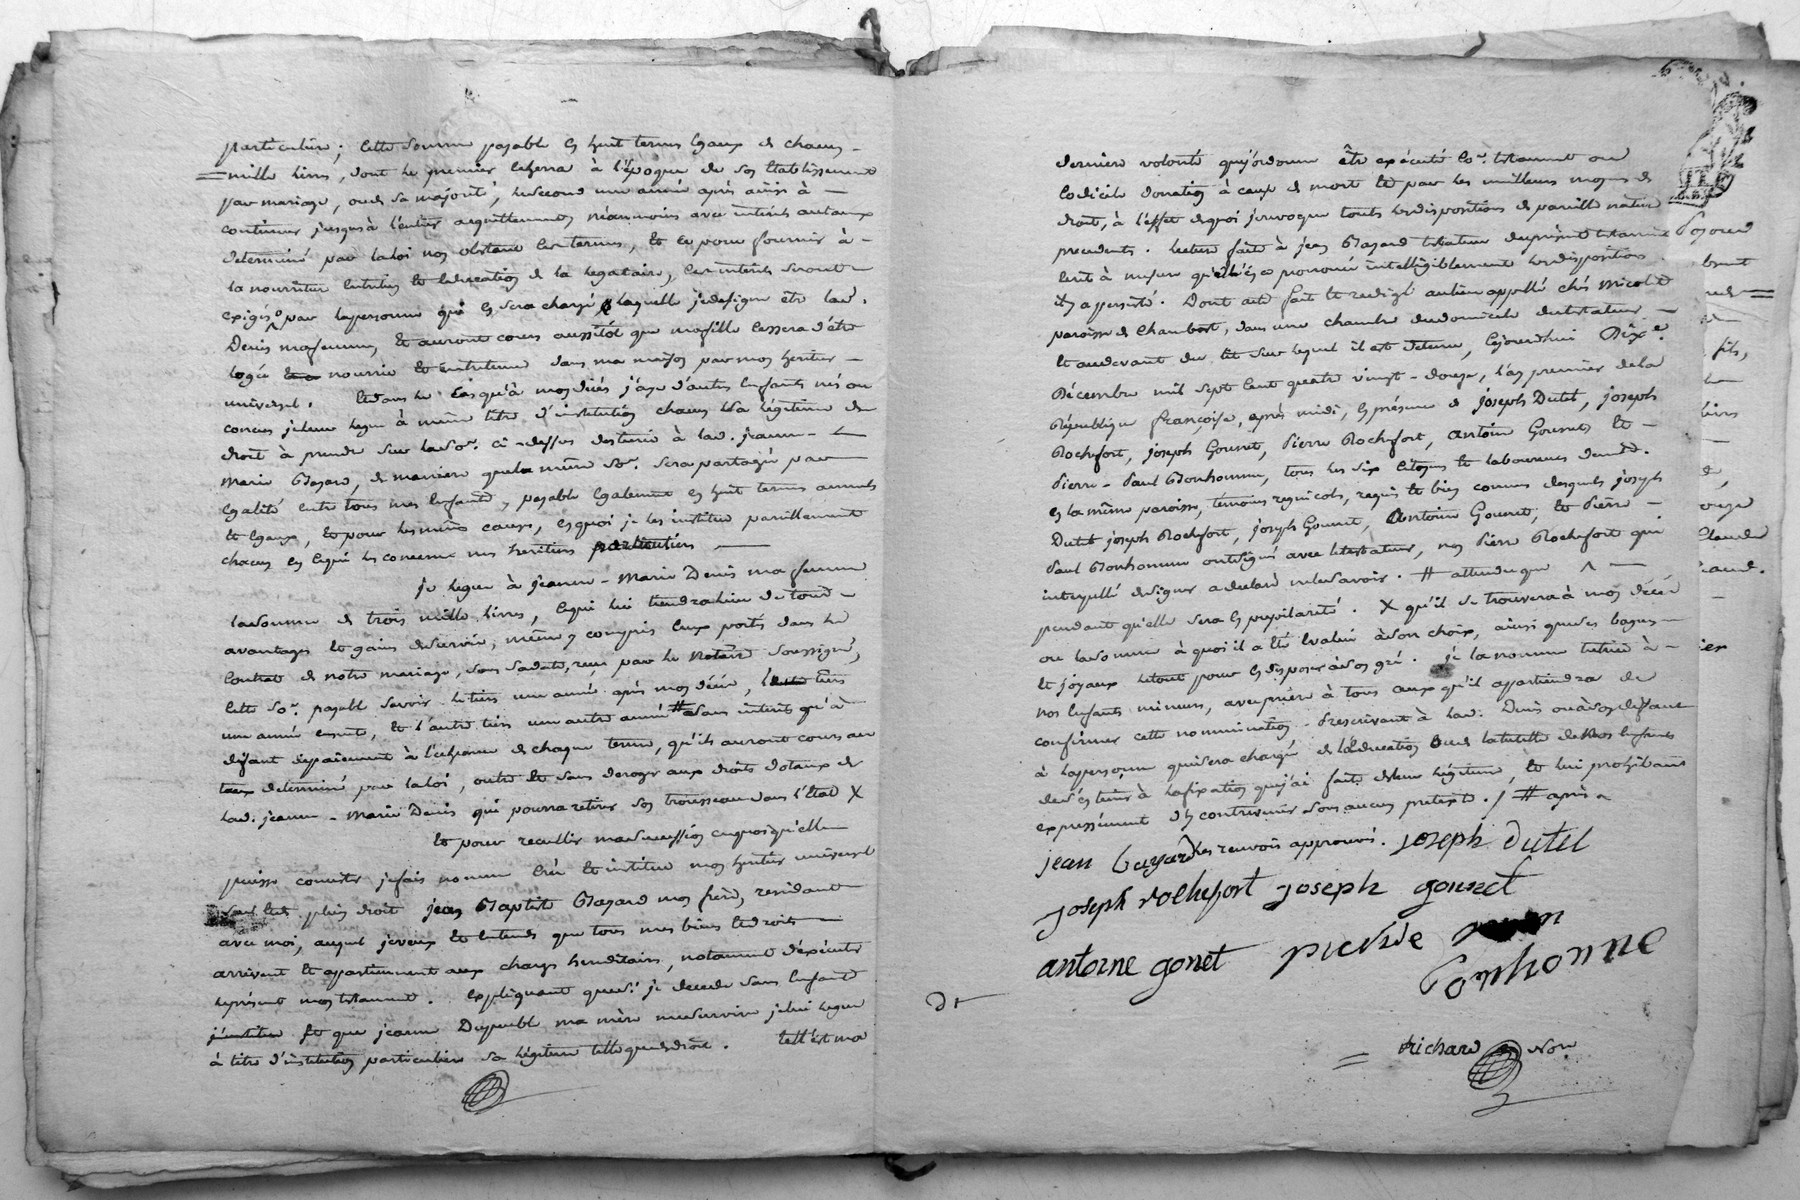 particulière; cette somme payable en huit termes egaux de chacun
mille livres, dont le premier echerra à l'époque de son etablissement
par mariage, ou de sa majorité, le second une année après ainsi à
continuer jusques à l'entier acquittement, néanmoins avec intérêts au taux
determiné par la loi non obstant les termes, et ce pour fournir à
la nourriture entretien et education de la legataire, les intérets seront
exigés par la personne qui en sera chargé laquelle je designe être lad.
Denis ma femme, et auront cours aussitôt que ma fille cessera d'être
logée nourrie et entretenue dans ma maison par mon heritier
universel. et dans le cas qu'à mon décès j'aye d'autres enfants nés ou
concus je leur legue à même titre d'institution chacun la légitime de
droit à prendre sur la so.e ci-dessus destinée à lad. jeanne
Marie Bayard, de manière que la même so.e sera partagée par
egalité entre tous mes enfants, payable egalement en huit termes annuels
et egaux, et pour les mêmes causes, en quoi je les institue pareillement
chacun en ce qui les concerne mes heritiers particuliers
je legue à jeanne-Marie Denis ma femme
la somme de trois mille livres, ce qui lui tiendra lieu de tous
avantages et gains de survie, même y compris ceux portés dans le
contrat de notre mariage, sous sa date, reçu par le Notaire soussigné,
cette so.e payable savoir le tiers une année après mon décès, tiers
une année ensuite, et l'autre tiers une autre année # sans intérets qu'à
défaut de paiement à l'echeance de chaque terme, qu'ils auront cours au
taux determiné par la loi, outre et sans deroger aux droits dotaux de
lad. jeanne-Marie Denis qui pourra retirer son trousseau dans l'état X
et pour recullir ma succession en quoi qu'elle
puisse consister je fais nomme crée et institue mon heritier universel
plein droit jean Baptiste Bayard mon frère, residant
avec moi, auquel je veux et entends que tous mes biens et droits
arrivent et appartiennent aux charges hereditaires, notamment d'exécuter
le présent mon testament. Expliquant que si je decede sans enfant
et que jeanne ma mère me survive je lui legue
à titre d'institution particulière sa légitime telle que de droit. telle est ma
derniere volonté que j'ordonne être exécuté co.e testament ou
codicile donation à cause de mort et par les meilleurs moyens de
droit, à l'effet de quoi je revoque toutes les dispositions de pareille nature
precedentes. Lecture faite à jean Bayard testateur du présent testament
écrit à mesure qu'il en a prononcé intelligiblement les dispositions
il y a persisté. Dont acte fait et redigé au lieu appellé chés Nicolet
paroisse de Chambost, dans une chambre du domicile du testateur
et au devant du lit sur lequel il est detenu, cejourdhui Dix.e
Décembre mil sept cent quatre vingt-douze, l'an premier de la
République françoise, après midi, en présence de joseph Dutel, joseph
Rochefort, joseph Gounet, Pierre Rochefort, Antoine Gounet, et
Pierre-Paul Bonhomme, tous les six citoyens et laboureurs
en la même paroisse, temoins regnicols, requis et bien connus desquels joseph
Dutel joseph Rochefort, joseph Gounet, Antoine Gounet, et Pierre
Paul Bonhomme ont signé avec le testateur, non Pierre Rochefort qui
interpellé de signer a declaré ne le savoir. # attendu que
pendant qu'elle sera en pupilarité. X qu'il se trouvera à mon décés
ou la somme à quoi il a été evalué à son choix, ainsi que ses bagues
et joyaux pour en disposer à son gré. je la nomme tutrice à
nos enfants mineurs, avec prière à tous ceux qu'il appartiendra de
confirmer cette nomination. Prescrivant à lad. Denis ou à son deffaut
à la personne qui sera chargée de l'éducation ou de la tutelle de nos enfants
de s'en tenir à la fixation que j'ai faite de leur légitime, et lui prohibant
expressément d'y contrevenir sous aucun pretexte. / # après
jean bayard les renvois approuvés. joseph dutel
joseph rochefort joseph gounet
antoine gonet pierre
bonhomme
Dt
Richard No.re